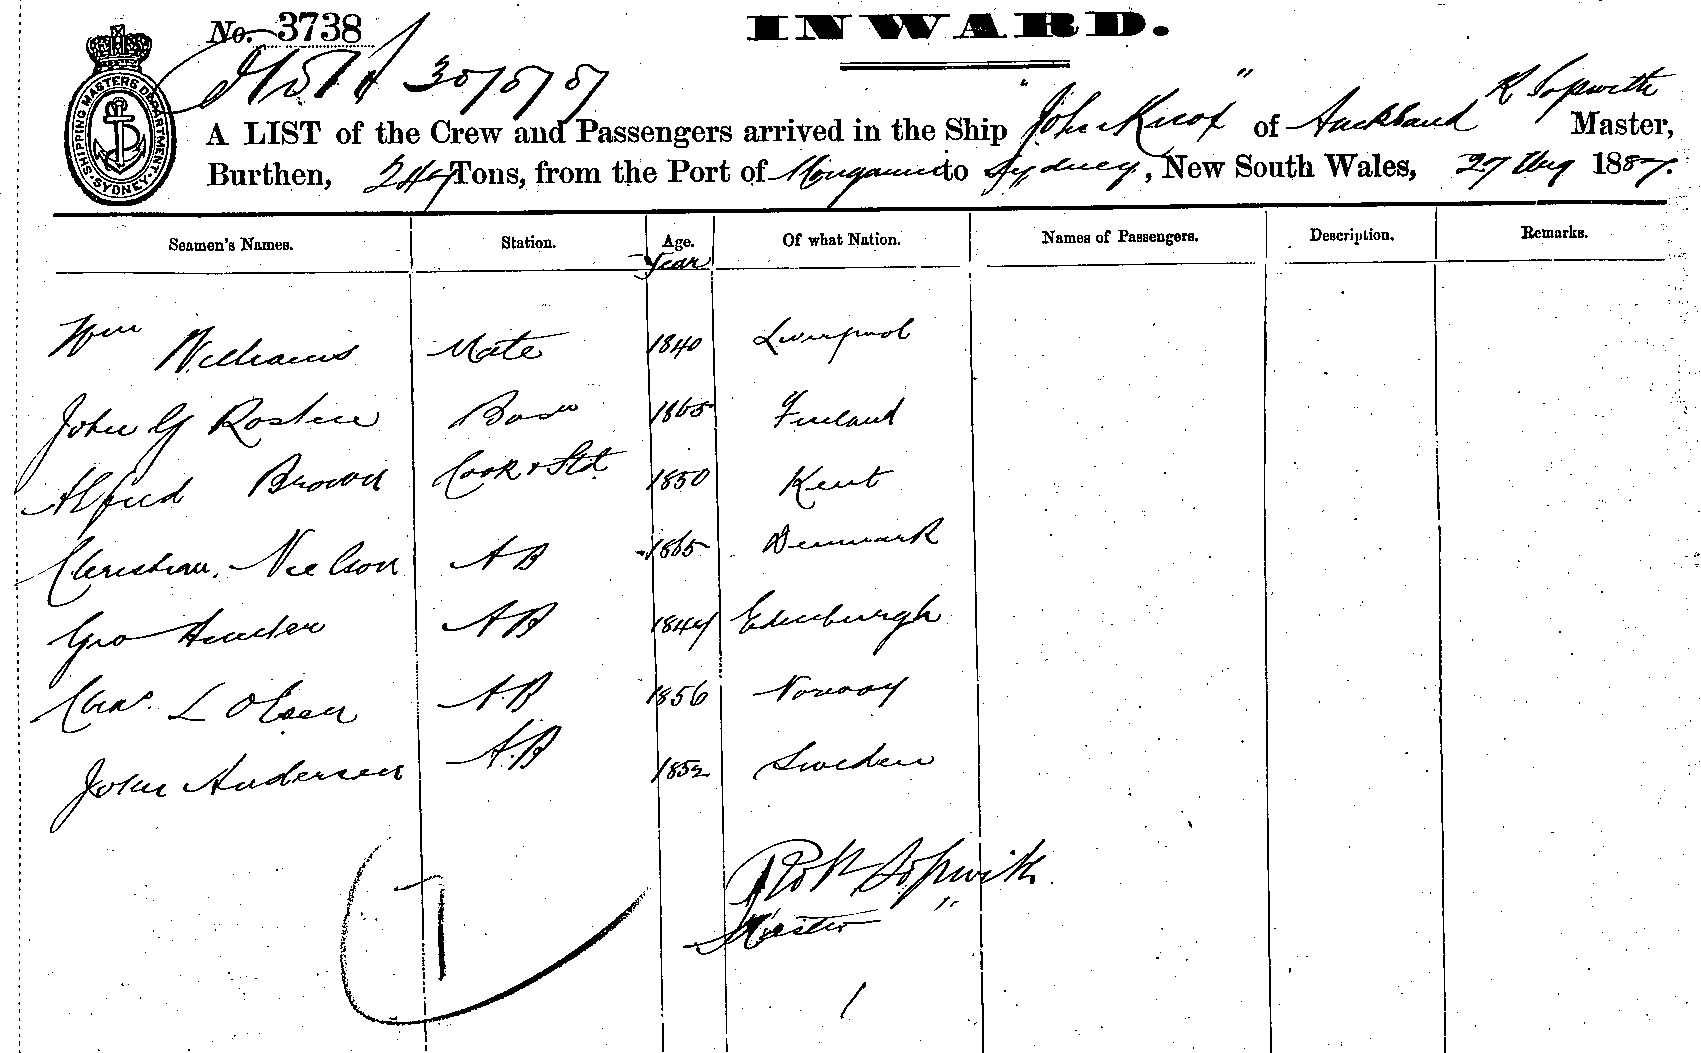 No. 3738
INWARD.
SHIPPING MASTERS DEPARTMENT SYDNEY
30/8/87
R Sopwith
A LIST of the Crew and Passengers arrived in the Ship "John Knox" of Auckland Master,
Burthen, Tons, from the Port of to Sydney, New South Wales, 27 Aug 1887.
Seamen's Names. Station. Age. Of what Nation. Names of Passengers. Description. Remarks.
Year
Wm Williams Mate 1840 Liverpool
John G 1865 Finland
Alfred Brown Cook & Std. 1850 Kent
Christian Nielson AB 1865 Denmark
Geo Hunter AB Edinburgh
Chas. L Olsen AB 1856 Norway
John Andersen A.B 1852 Sweden
Robt Sopwith
Master
7
1